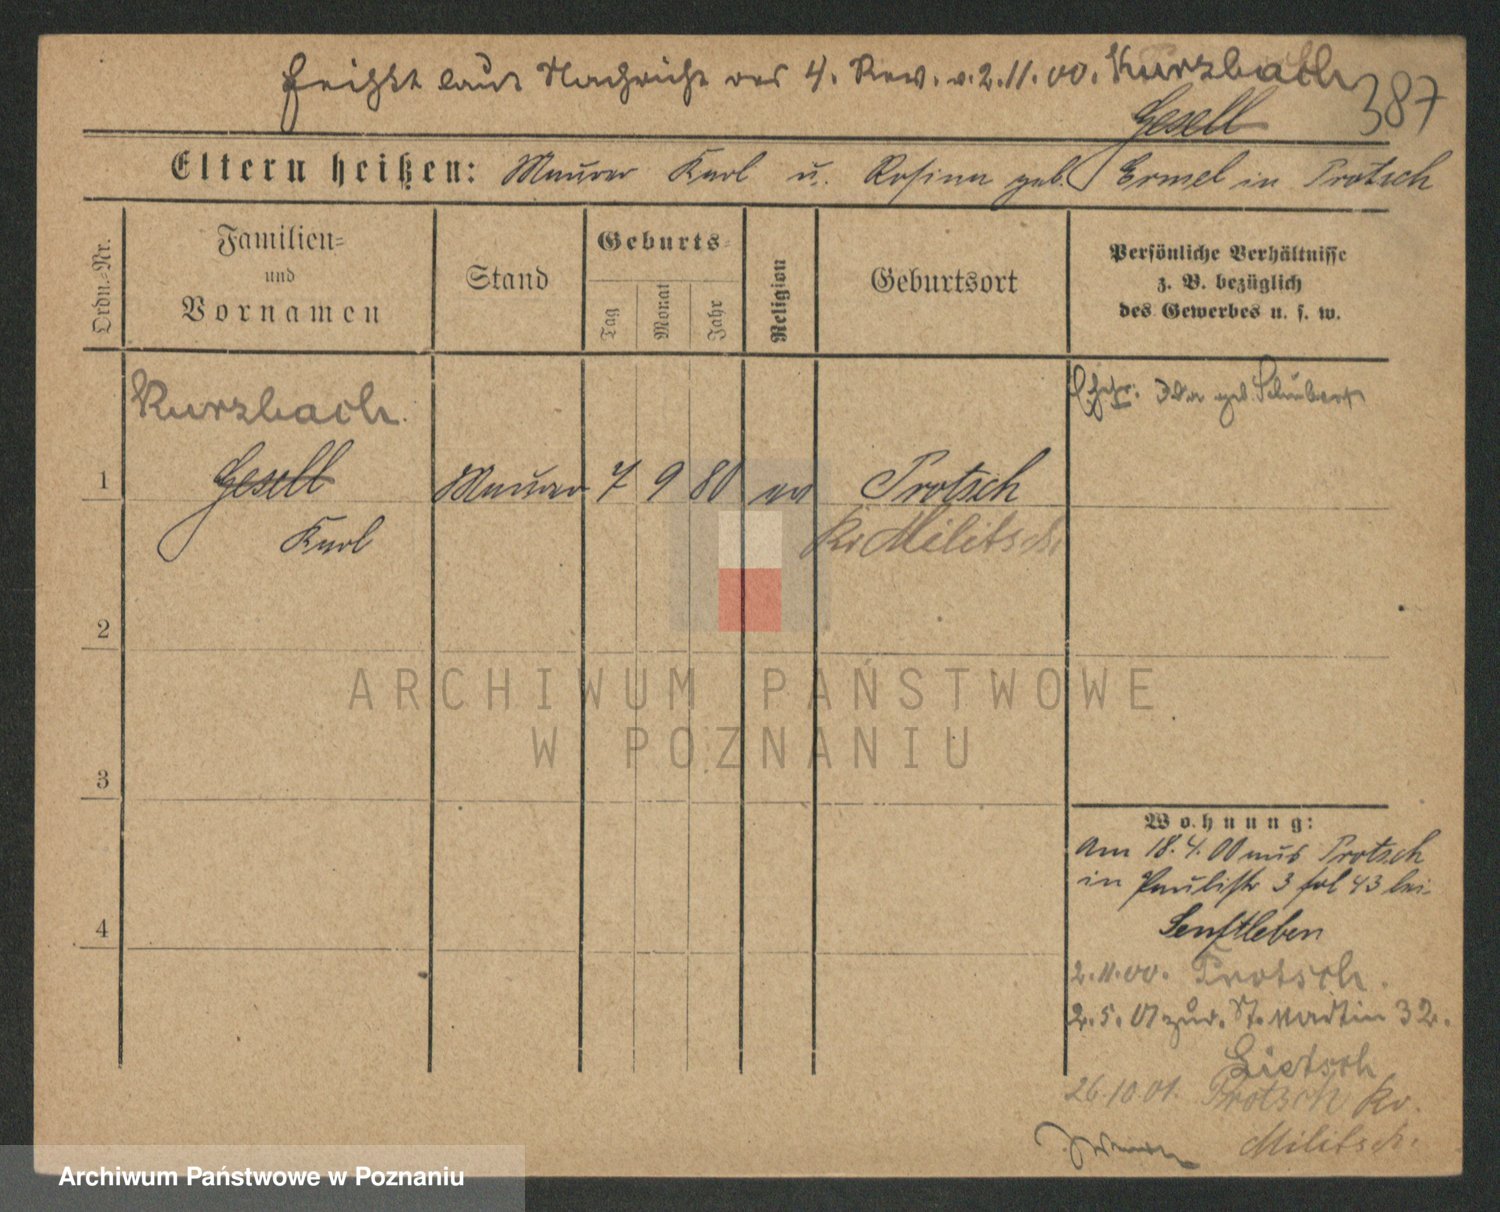 heißt laut Nachricht des 4. Rev. v. 2.11.00. Kurzbach
387
Gesell
Eltern heißen: Maurer Karl u. Rosina geb. Ermel in Protsch
Ordn.-Nr.
Familien-
und
Vornamen
Stand
Geburts-
Tag
Monat
Jahr
Religion
Geburtsort
Persönliche Verhältnisse
z. B. bezüglich
des Gewerbes u. s. w.
Kurzbach.
Ehefr: Ida geb. Schubert
1 Gesell Maurer 7 9 80 ev Protsch
Karl Kr. Militsch.
2
ARCHIWUM PAŃSTWOWE
W POZNANIU
3
Wohnung:
am 18.4.00 aus Protsch
in Paulistr 3 fol 43 bei
Senftleben
4
2.11.00. Protsch.
2.5.01 zur. St. Martin 32.
Lietsch
26.10.01. Protsch Kr.
Militsch.
Archiwum Państwowe w Poznaniu